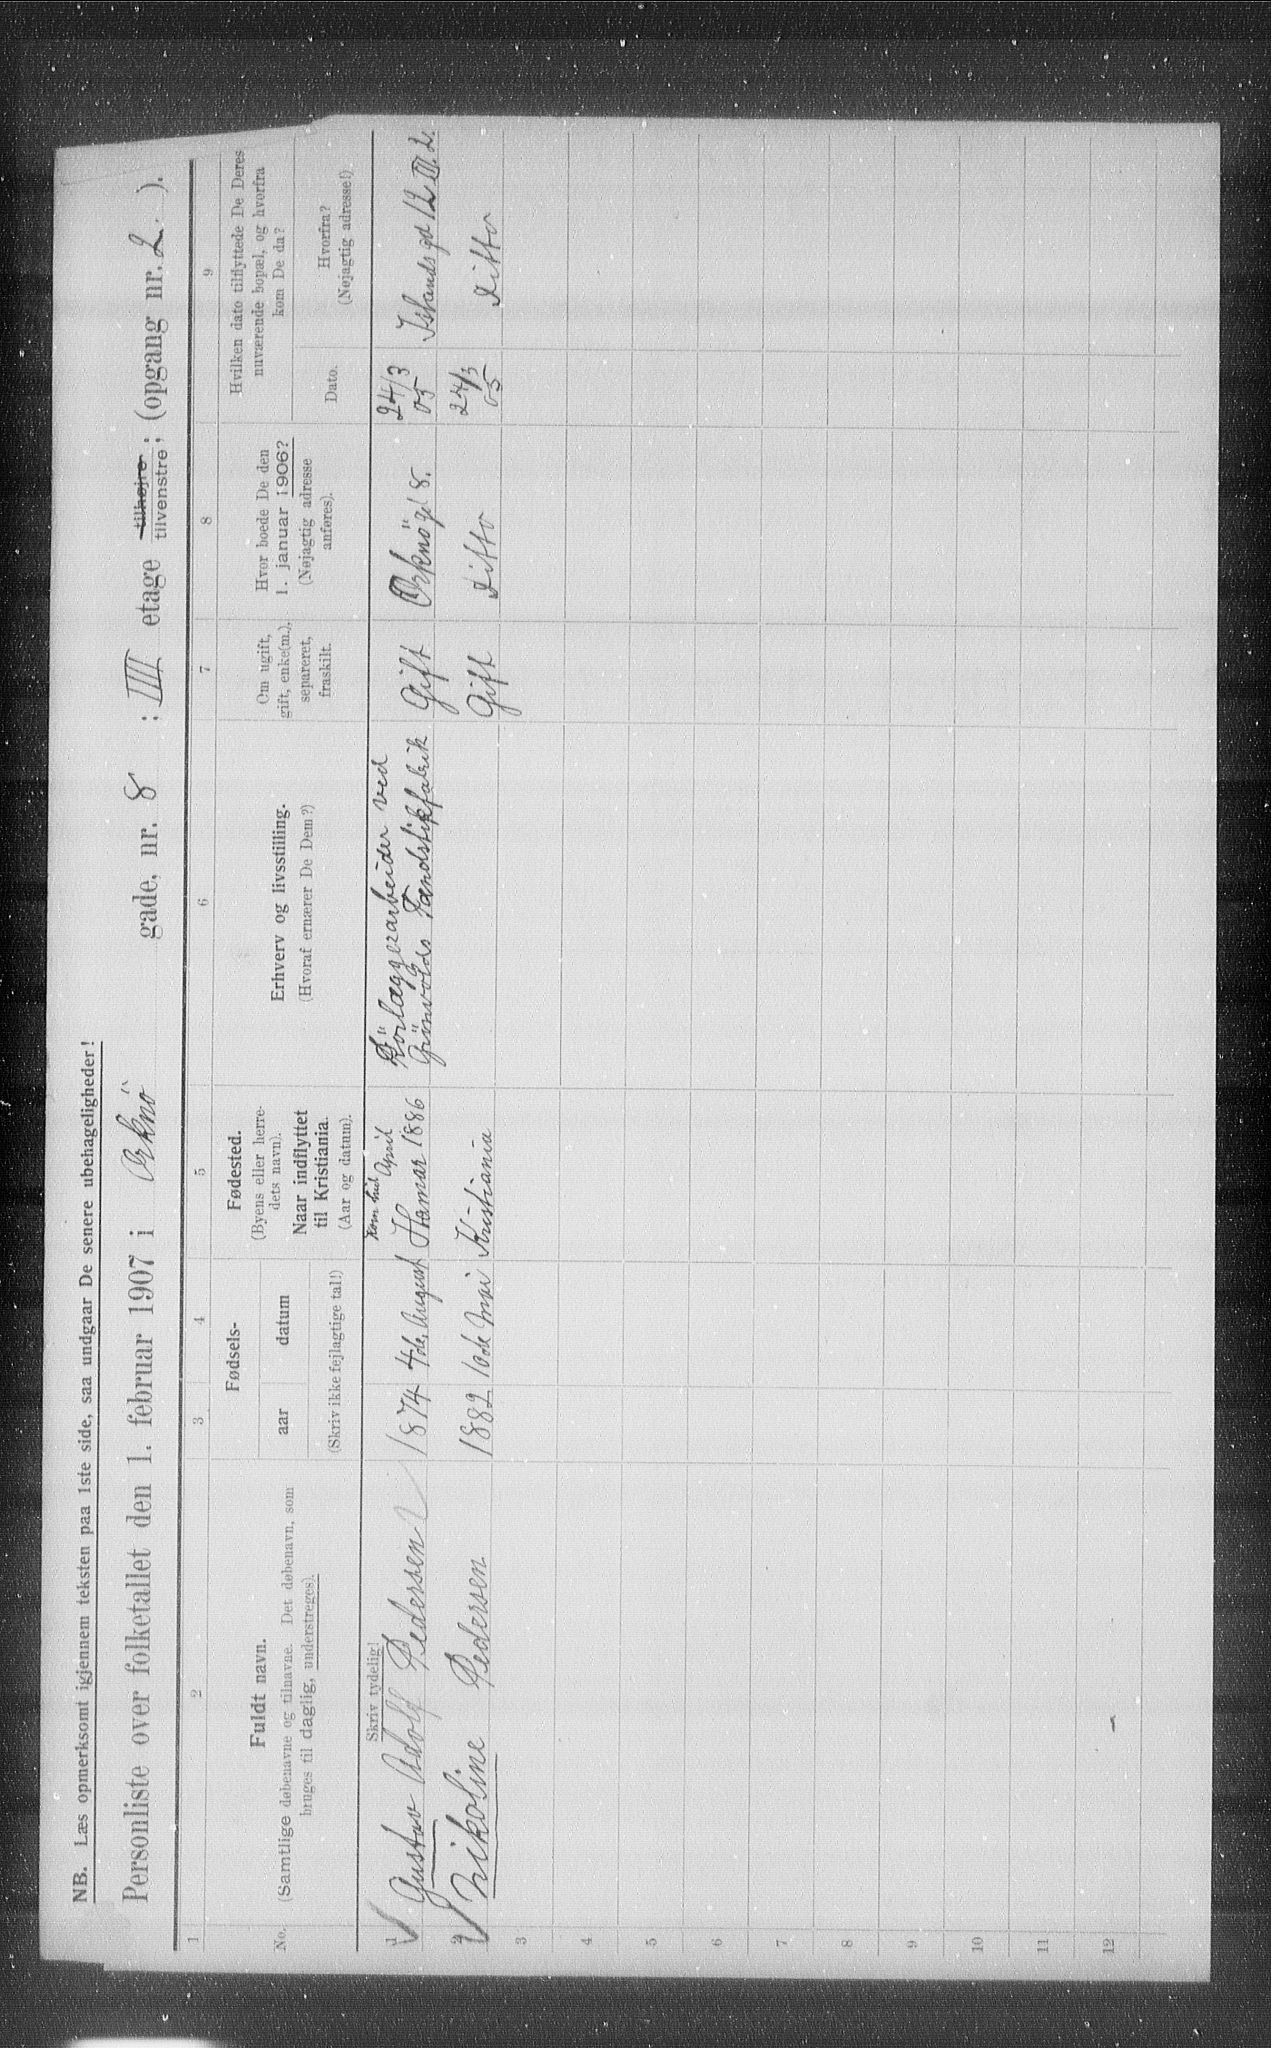 NB. Læs opmerksomt igjennem teksten paa 1ste side, saa undgaar De senere ubehageligheder!
Personliste over folketallet den 1. februar 1907 i Orknö gade, nr. 8 : III etage tilhøjre tilvenstre ; (opgang nr. 2. ).
1 2 3 4 5 6 7 8 9
No.
Fuldt navn.
(Samtlige døbenavne og tilnavne. Det døbenavn, som
bruges til daglig, understreges).
Fødsels-
aar datum
(Skriv ikke fejlagtige tal!)
Fødested.
(Byens eller herre-
dets navn).
Naar indflyttet
til Kristiania.
(Aar og datum).
Erhverv og livsstilling.
(Hvoraf ernærer De Dem?)
Om ugift,
gift, enke(m.),
separeret,
fraskilt.
Hvor boede De den
1. januar 1906?
(Nøjagtig adresse
anføres).
Hvilken dato tilflyttede De Deres
nuværende bopæl, og hvorfra
kom De da?
Dato.
Hvorfra?
(Nøjagtig adresse!)
Skriv tydelig!
1 Gustav Adolf Pedersen 1874 4de August kom hid April Hamar 1886 ved Grönvolds Tændstikfabrik Gift Orknö gd 8. 24/3 05 Islands gd 12 III. 2.
2 Nikoline Pedersen 1882 10de Mai Kristiania Gift Ditto 24/3 05 Ditto
3
4
5
6
7
8
9
10
11
12